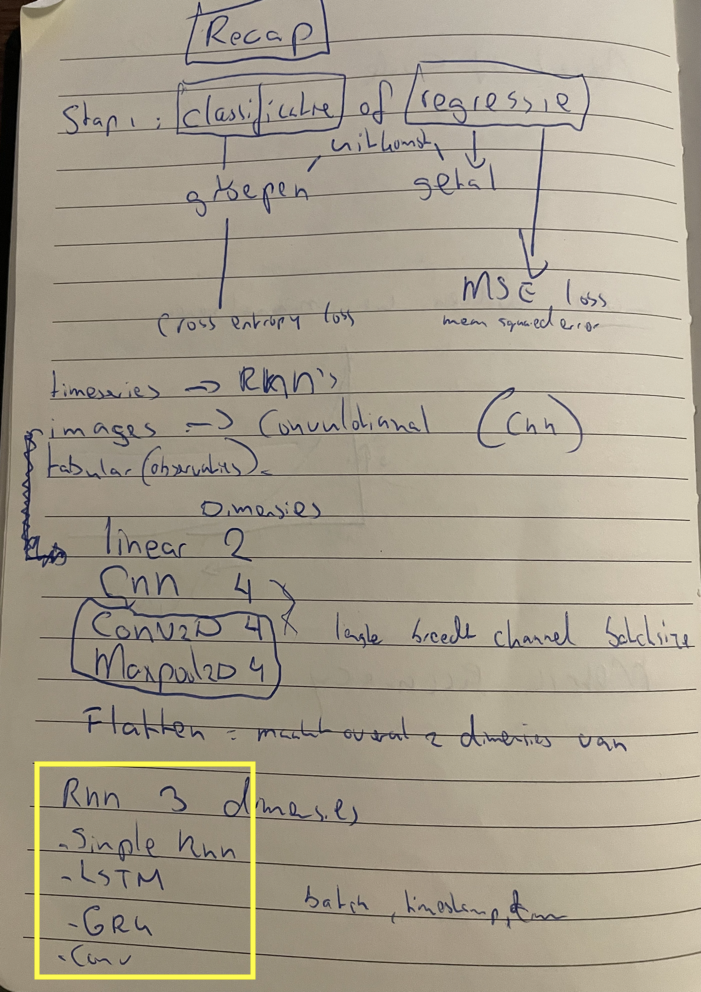 Recap
Stap 1: classificatie of regressie
uitkomst
groepen getal
MSE loss
Cross entropy loss mean squared error
timeseries -> Rnn's
images -> Convuldianal (Cnn)
tabular (observaties) =
Dimensies
linear 2
Cnn 4
Conv2D 4 lengte breedte channel batchsize
Maxpool2D 4
Flatten = maakt overal 2 dimensies van
Rnn 3 dimensies
- Simple Rnn
- LSTM
batch, timestamp,
- GRU
- Conv